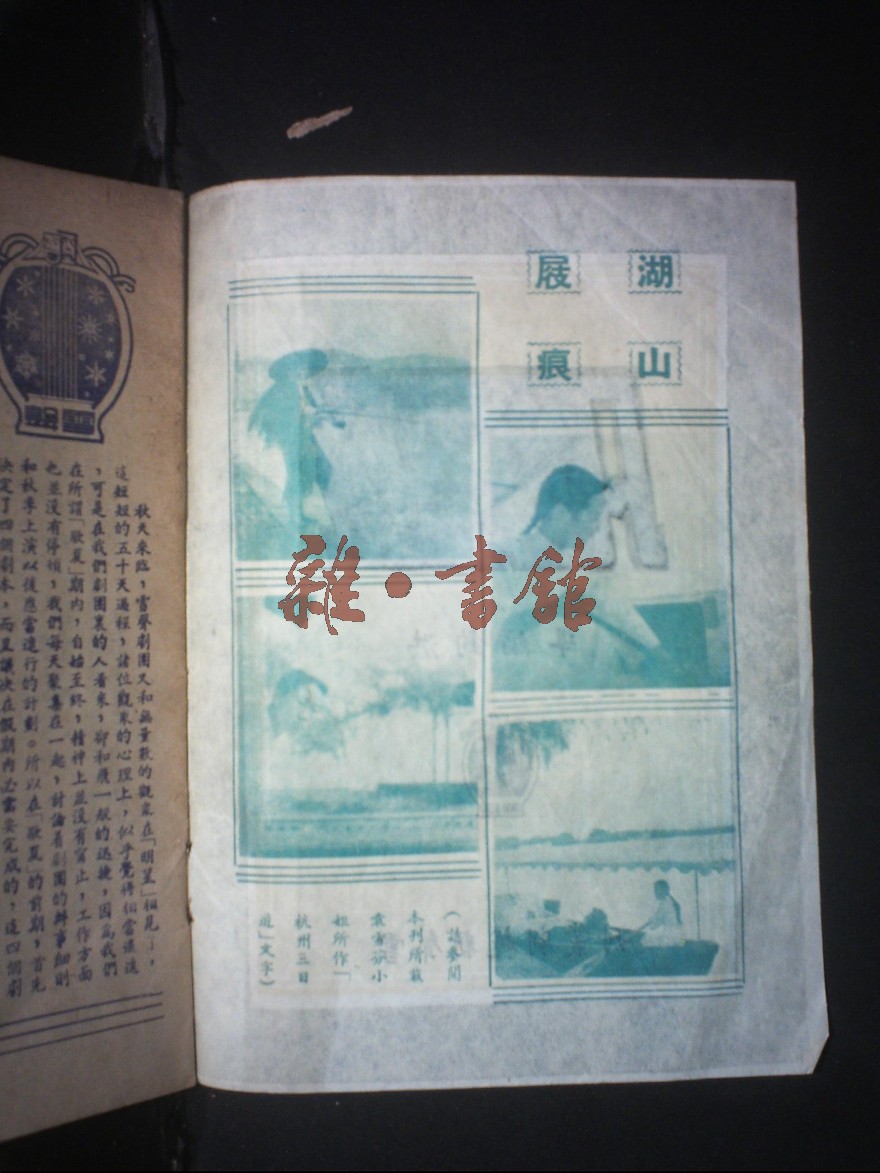 湖山
屐痕
（請參閱
本刊所載
袁雪芬小
姐所作「
杭州三日
遊」文字）
雜·書館
秋天來臨，雪聲劇團又和無量數的觀衆在「明星」相見了，
這短短的五十天過程，諸位觀衆的心理上，似乎覺得相當遙遠
，可是在我們劇團裏的人看來，却和飛一般的迅捷，因爲我們
在所謂「歇夏」期內，自始至終，精神上並沒有甯止，工作方面
也並沒有停頓，我們每天聚集在一起，討論着劇團的辦事細則
和秋季上演以後應當進行的計劃。所以在「歇夏」的前期，首先
決定了四個劇本，而且議決在假期內必需要完成的，這四個劇